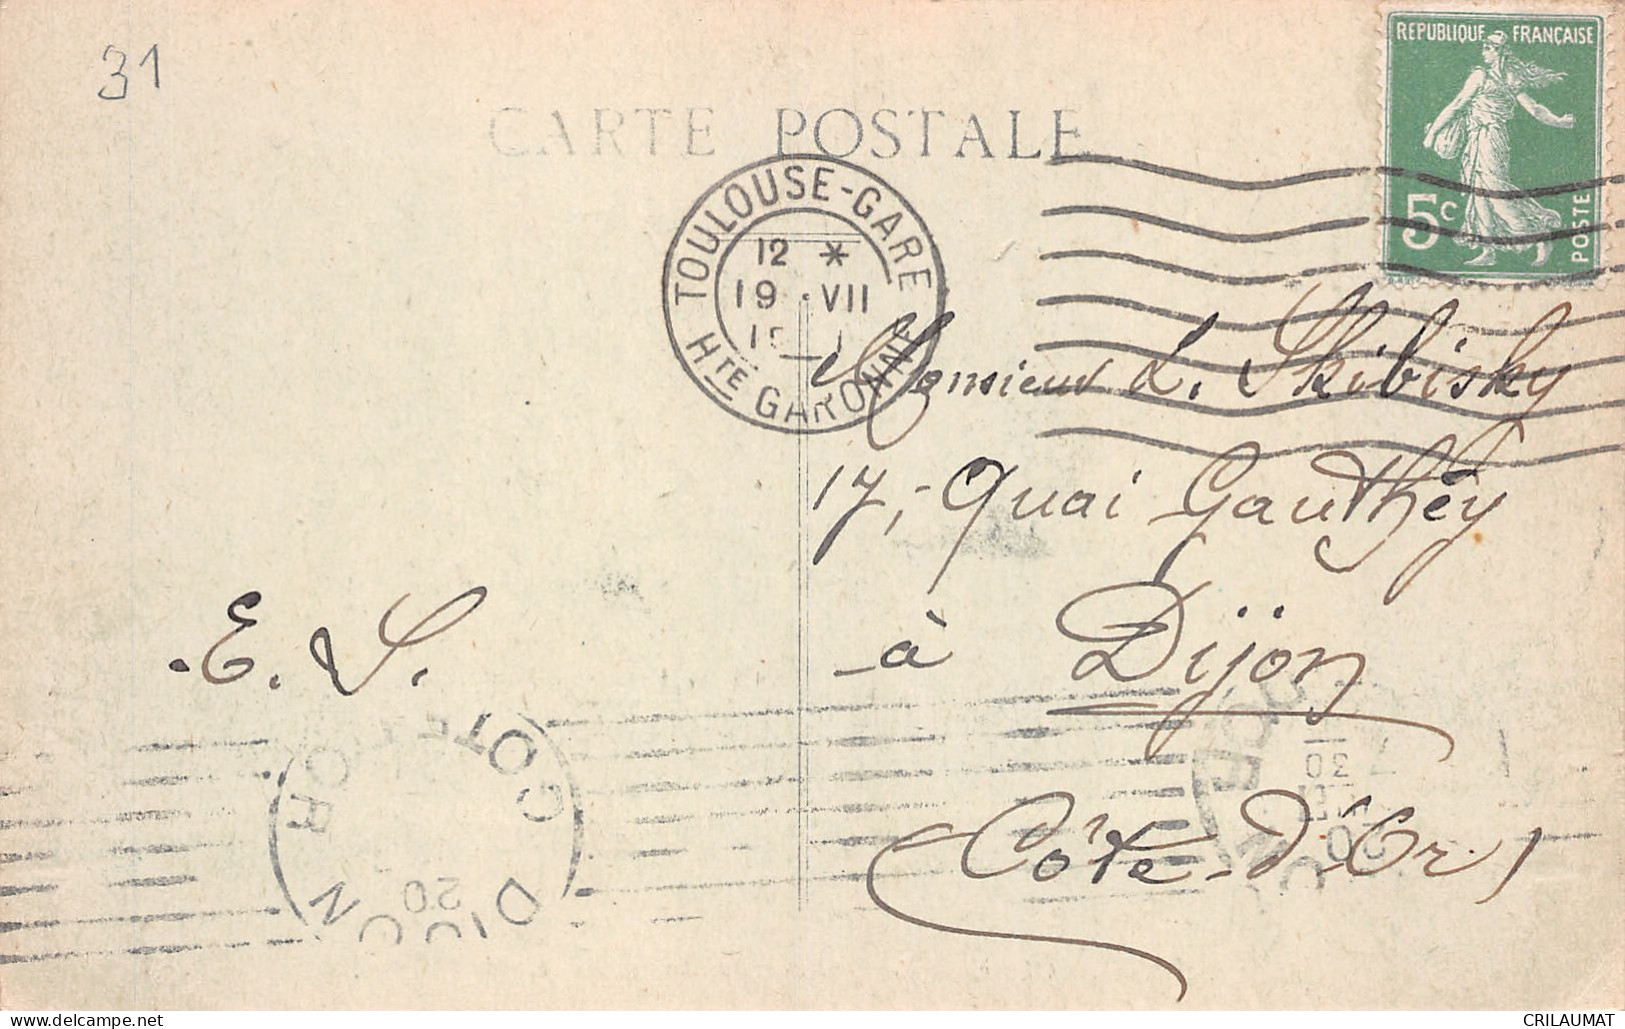 31
CARTE POSTALE
REPUBLIQUE FRANÇAISE
5c
POSTE
TOULOUSE-GARE
12 *
19 VII
HTE GARONNE
Monsieur L. Skibisky
17, Quai Gauthey
à Dijon
(Côte-d'Or)
E. S.
COTE D'OR
20
DIJON
30
20
CRILAUMAT